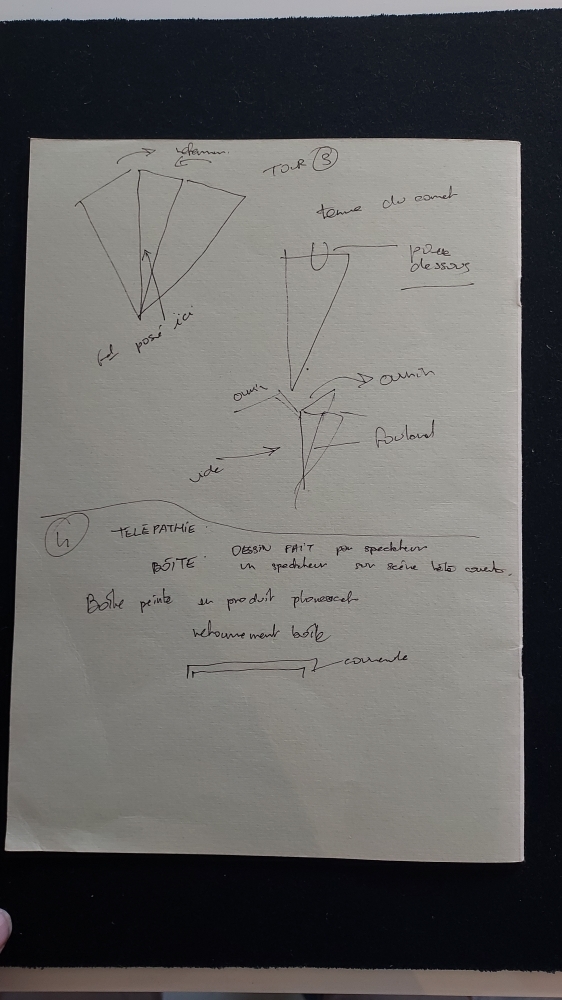 TOUR 3
tenue du cornet
pince
dessous
posé ici
ouvrir
ouvrir
Foulard
vide
4 TELEPATHIE.
DESSIN FAIT par spectateur
BOÎTE. un spectateur sur scène tête
Boîte peinte en produit
retournement boîte
couvercle